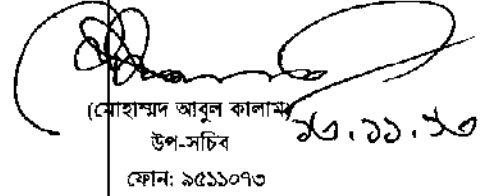 (মোহাম্মদ আবুল কালাম)
১৩.১১.১৩
উপ-সচিব
ফোন: ৯৫১১০৭৩